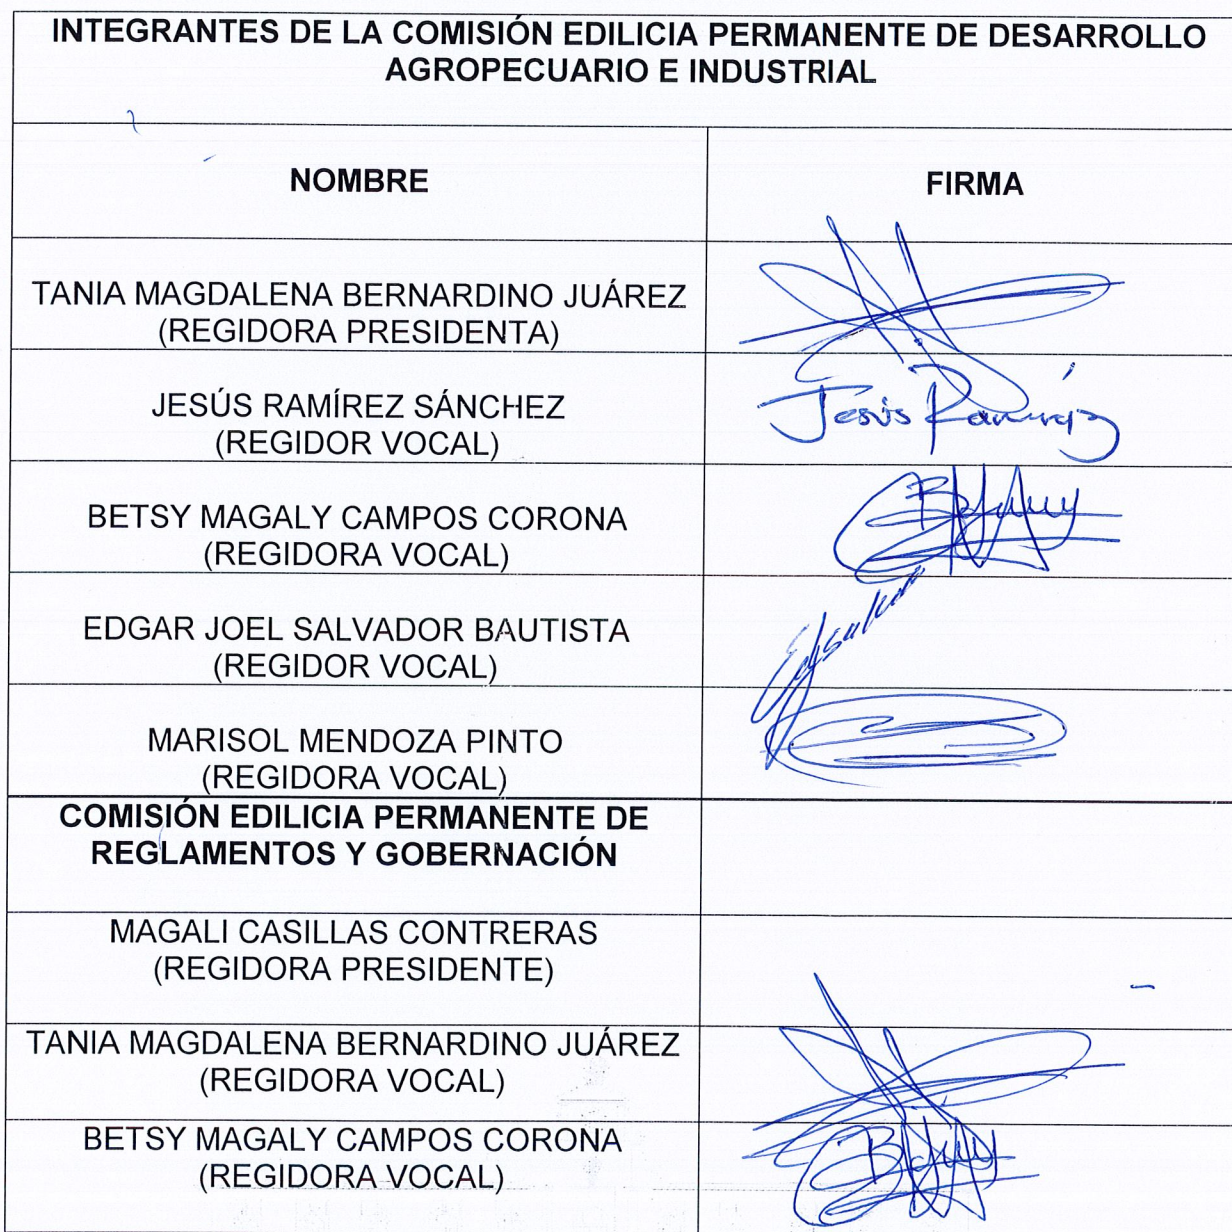 INTEGRANTES DE LA COMISIÓN EDILICIA PERMANENTE DE DESARROLLO
AGROPECUARIO E INDUSTRIAL
NOMBRE
FIRMA
TANIA MAGDALENA BERNARDINO JUÁREZ
(REGIDORA PRESIDENTA)
JESÚS RAMÍREZ SÁNCHEZ
(REGIDOR VOCAL)
Jesús Ramírez
BETSY MAGALY CAMPOS CORONA
(REGIDORA VOCAL)
EDGAR JOEL SALVADOR BAUTISTA
(REGIDOR VOCAL)
MARISOL MENDOZA PINTO
(REGIDORA VOCAL)
COMISIÓN EDILICIA PERMANENTE DE
REGLAMENTOS Y GOBERNACIÓN
MAGALI CASILLAS CONTRERAS
(REGIDORA PRESIDENTE)
TANIA MAGDALENA BERNARDINO JUÁREZ
(REGIDORA VOCAL)
BETSY MAGALY CAMPOS CORONA
(REGIDORA VOCAL)